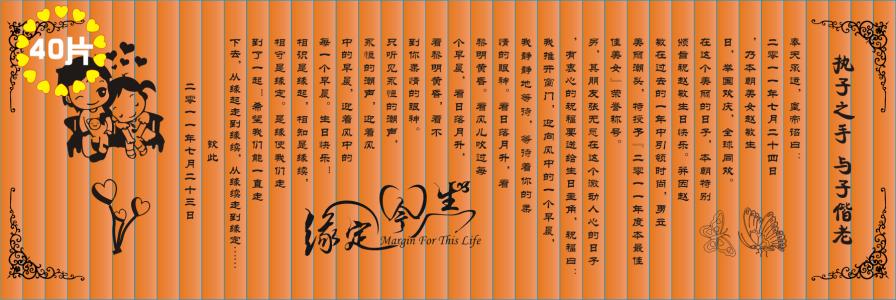 执子之手 与子偕老
奉天承运，皇帝诏曰：
二零一一年七月二十四日
，乃本朝美女赵敏生
日，举国欢庆，全球同欢。
在这个美丽的日子，本朝特别
颁旨祝赵敏生日快乐。并因赵
敏在过去的一年中引领时尚，勇立
美丽潮头，特授予『二零一一年度本最佳
佳美女』荣誉称号。
另，其朋友张无忌在这个激动人心的日子
，有衷心的祝福要送给生日主角，祝福曰：
我推开窗门，迎向风中的一个早晨，
我静静地等待，等待着你的柔
情的眼神。看日落月升，看
黎明黄昏。看风儿吹过每
个早晨，看日落月升，
看黎明黄昏，看不
到你柔情的眼神。
只听见永恒的潮声，
永恒的潮声，迎着风
中的早晨，迎着风中的
每一个早晨。生日快乐！
相识是缘起，相知是缘续，
相守是缘定。是缘使我们走
到了一起！希望我们能一直走
下去，从缘起走到缘续，从缘续走到缘定……
钦此
二零一一年七月二十三日
缘定今生
Margin For This Life
40片